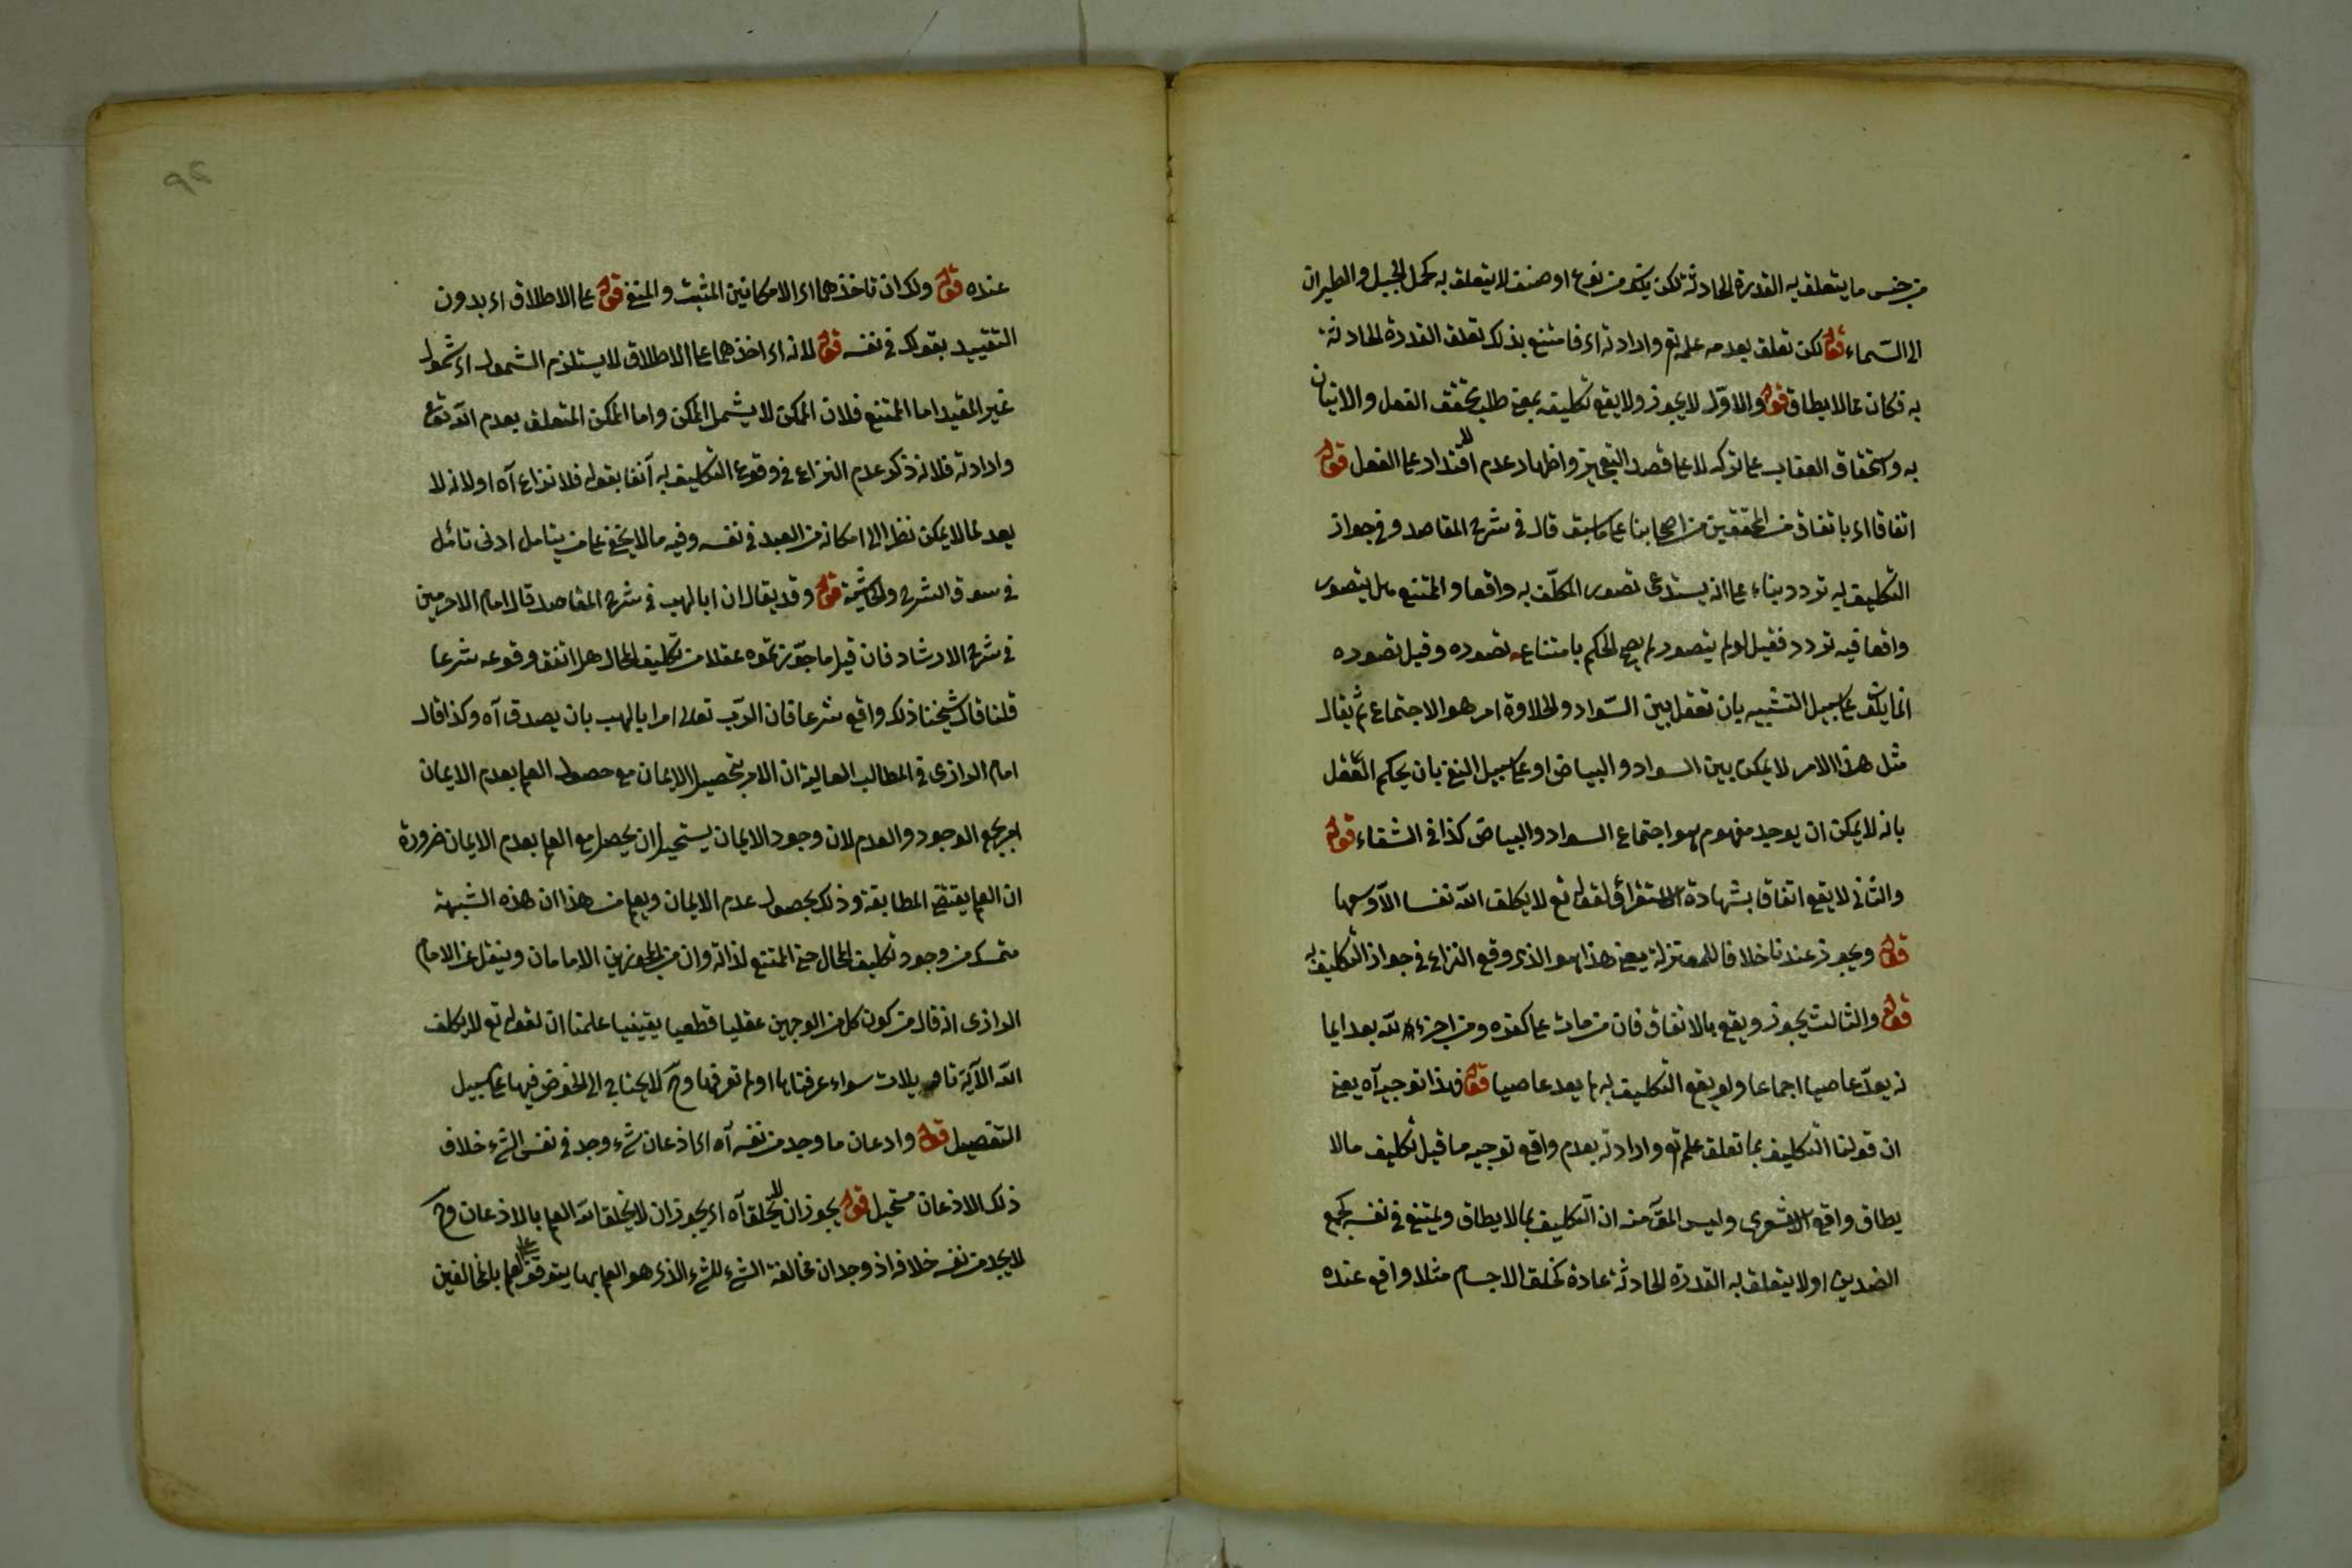 من جنس ما يتعلق به القدرة الحادثة لكن يكون من نوع او صنف لا يتعلق به كحمل الجبل والطيران
الى السماء قوله لكن تعلق بعدمه علمه تع وارادته اى فامتنع بذلك تعلق القدرة الحادثة
به فكان مما لا يطاق قوله والاوّل لا يجوز ولا يقع تكليفه بمعنى طلب تحقق الفعل والاتيان
به واستحقاق العقاب على تركه لا على قصد التعجيز واظهار عدم الاقتدار على الفعل قوله
اتفاقا اى باتفاق من المحققين من اصحابنا على ما سبق قال فى شرح المقاصد وفى جواز
التكليف به تردد بناء على انه يستدعى تصور المكلّف به واقعا والممتنع هل يتصور
واقعا فيه تردد فقيل لو لم يتصور لم يصح الحكم بامتناع تصوره وقيل تصوره
انما يكون على سبيل التشبيه بان تعقل بين السّواد والحلاوة امر هو الاجتماع ثم يقال
مثل هذا الامر لا يمكن بين السواد والبياض او على سبيل النفى بان يحكم العقل
بانه لا يمكن ان يوجد مفهوم هو اجتماع السواد والبياض كذا فى الشفاء قوله
والثانى لا يقع اتفاقا بشهادة الاستقراء ولقوله تع لا يكلف الله نفسا الّا وسعها
قوله ويجوز عندنا خلافا للمعتزلة يعنى هذا هو الذى وقع النزاع فى جواز التكليف به
قوله والثالث يجوز ويقع بالاتفاق فان من مات على كفره ومن اخبر الله بعد ايما
نه يعدّ عاصيا اجماعا ولو لم يقع التكليف به لم يعد عاصيا قوله فهذا توجيه آه يعنى
ان قولنا التكليف بما تعلق علمه تع وارادته بعدم واقع توجيه ما قيل تكليف ما لا
يطاق واقع الاشعرى وليس المق منه ان التكليف بما لا يطاق ويمتنع فى نفسه كجمع
الضدين او لا يتعلق به القدرة الحادثة عادة كخلق الاجسام مثلا واقع عنده
عنده قوله ولك ان تاخذهما اى الامكانين المثبت والمنفى قوله على الاطلاق اى بدون
التقييد بقولك فى نفسه قوله لانه اى اخذهما على الاطلاق لا يستلزم الشمول اى شمول
غير المقيد اما الممتنع فلان الممكن لا يشمل الممكن واما الممكن المتعلق بعدم الله تع
وارادته فلانه ذكر عدم النزاع فى وقوع التكليف به آنفا بقوله فلا نزاع آه اولا نه لا
يعد مما لا يمكن نظرا الى امكانه من العبد فى نفسه وفيه ما لا يخفى على من يتامل ادنى تامّل
فى سوق الشرح والحاشية قوله وقد يقال ان ابا لهب فى شرح المقاصد قال امام الحرمين
فى شرح الارشاد فان قيل ما جوّزتموه عقلا من تكليف المحال هل اتفق وقوعه شرعا
قلنا قال شيخنا ذلك واقع شرعا فان الرّب تعالى امر ابا لهب بان يصدق آه وكذا قال
امام الرازى فى المطالب العالية ان الامر بتحصيل الايمان مع حصول العلم بعدم الايمان
امر بجمع الوجود والعدم لان وجود الايمان يستحيل ان يحصل مع العلم بعدم الايمان ضرورة
ان العلم يقتضى المطابقة وذلك بحصول عدم الايمان ويعلم من هذا ان هذه الشبهة
متمسك من وجود تكليف المحال حتى الممتنع لذاته وان من المجوزين الامامان وينقل عن الامام
الرازى انه قال من كون كل من الوجهين عقليا قطعيا يقينيا علمنا ان لقوله تع لا يكلف
الله الآية تاويلات سواء عرفناها او لم نعرفها وح لا يحتاج الى الخوض فيها على سبيل
التفصيل قوله واذعان ما وجد من نفسه آه اى اذعان شىء وجد فى نفس الشىء خلاف
ذلك الاذعان مستحيل قوله يجوز ان لا يخلق آه اى يجوز ان لا يخلق الله العلم بالاذعان وح
لا يجد من نفسه خلافه اذ وجدان مخالفة الشىء للشىء الذى هو العلم بها يتوقف على العلم بالمخالفين